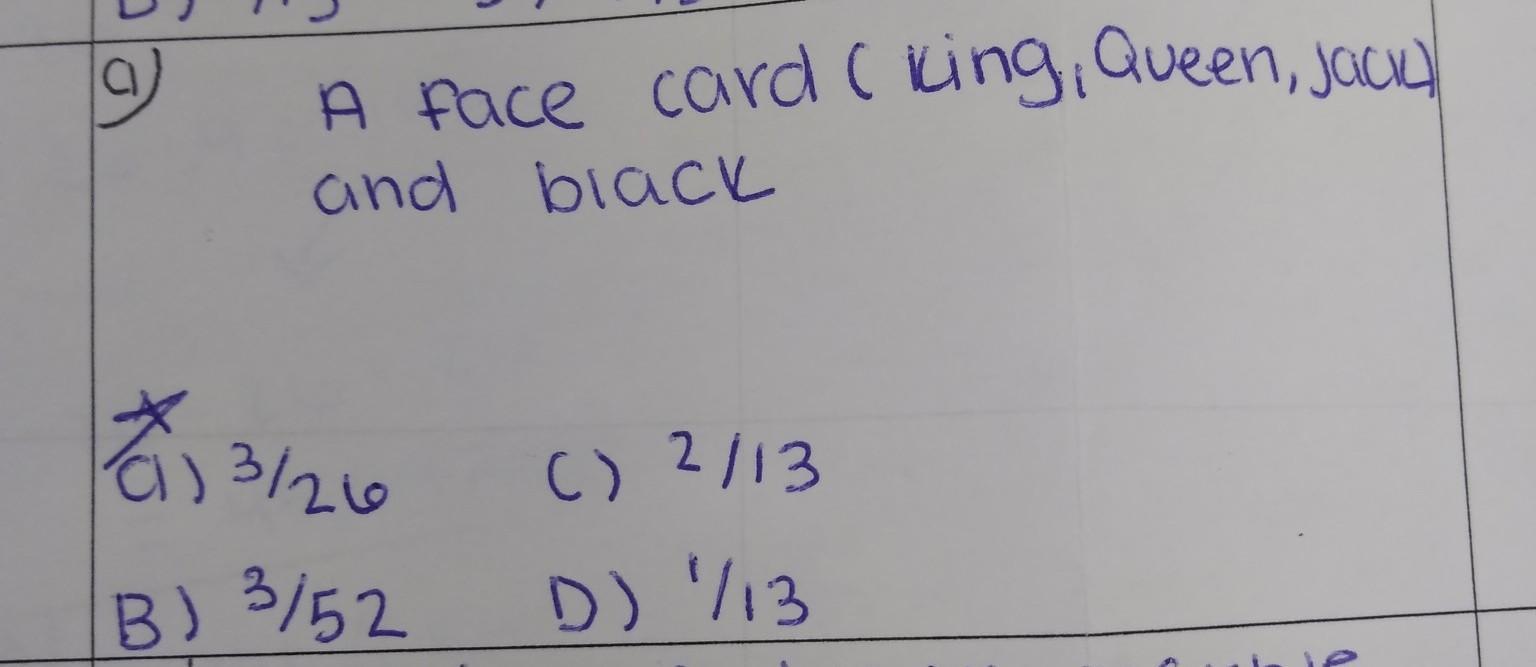 9) A face card (King, Queen, Jack)
and black
a) 3/26 C) 2/13
B) 3/52 D) 1/13